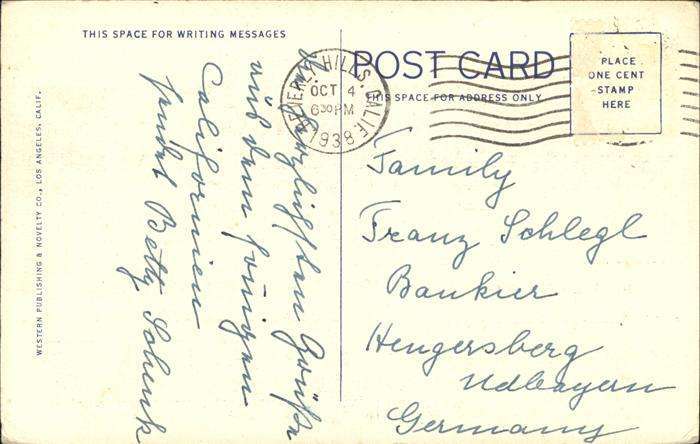 THIS SPACE FOR WRITING MESSAGES
herzlichsten Grüße
aus dem sonnigen
Californien
sendet Betty Schenk
WESTERN PUBLISHING & NOVELTY CO., LOS ANGELES, CALIF.
BEVERLY HILLS, CALIF.
OCT 4
6 30 PM
1938
POST CARD
THIS SPACE FOR ADDRESS ONLY
PLACE
ONE CENT
STAMP
HERE
Family
Franz Schlegl
Bankier
Hengersberg
Ndbayern
Germany